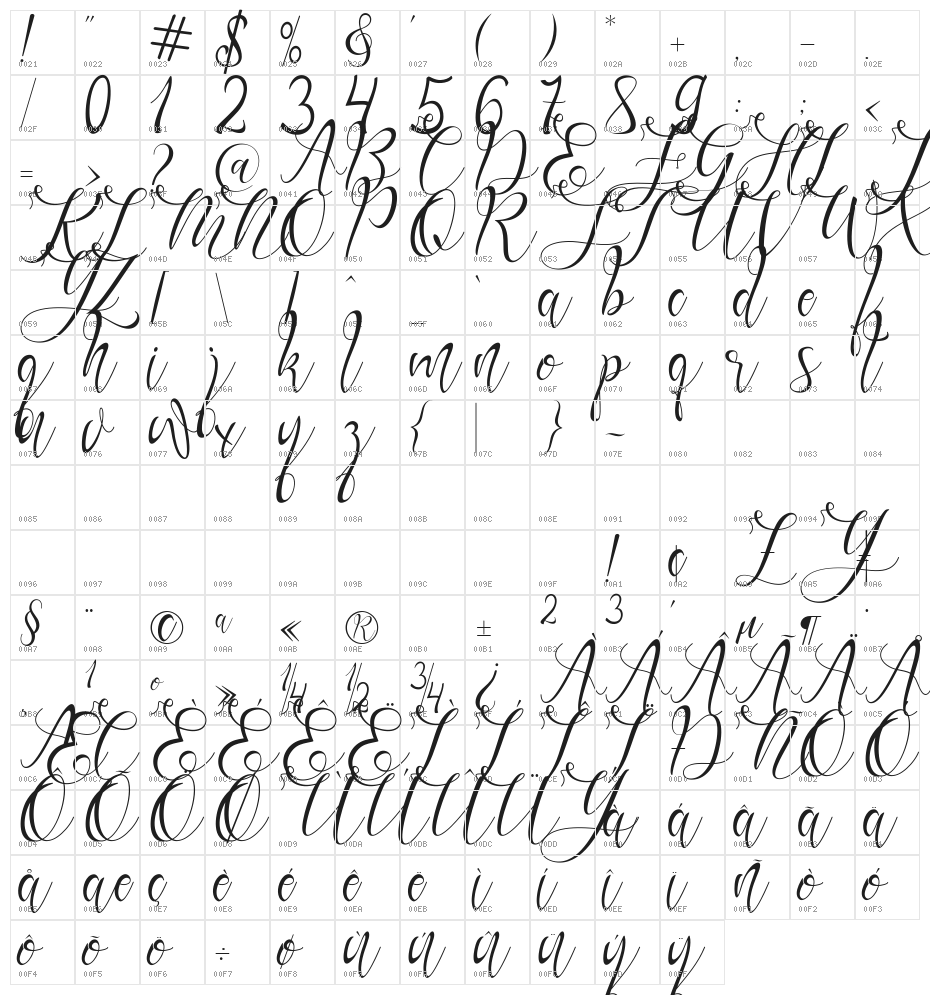 ! " # $ % & ' ( ) * + , - .
0021 0022 0023 0024 0025 0026 0027 0028 0029 002A 002B 002C 002D 002E
/ 0 1 2 3 4 5 6 7 8 9 : ; <
002F 0030 0031 0032 0033 0034 0035 0036 0037 0038 0039 003A 003B 003C
= > ? @ A B C D E F G H I J
003D 003E 003F 0040 0041 0042 0043 0044 0045 0046 0047 0048 0049 004A
K L M N O P Q R S T U V W X
004B 004C 004D 004E 004F 0050 0051 0052 0053 0054 0055 0056 0057 0058
Y Z [ \ ] ^ _ ` a b c d e f
0059 005A 005B 005C 005D 005E 005F 0060 0061 0062 0063 0064 0065 0066
g h i j k l m n o p q r s t
0067 0068 0069 006A 006B 006C 006D 006E 006F 0070 0071 0072 0073 0074
u v w x y z { | } ~
0075 0076 0077 0078 0079 007A 007B 007C 007D 007E 0080 0082 0083 0084
0085 0086 0087 0088 0089 008A 008B 008C 008E 0091 0092 0093 0094 0095
¡ ¢ £ ¥ ¦
0096 0097 0098 0099 009A 009B 009C 009E 009F 00A1 00A2 00A3 00A5 00A6
§ ¨ © ª « ® ± ² ³ ´ µ ¶ ·
00A7 00A8 00A9 00AA 00AB 00AE 00B0 00B1 00B2 00B3 00B4 00B5 00B6 00B7
¸ ¹ º » ¼ ½ ¾ ¿ À Á Â Ã Ä Å
00B8 00B9 00BA 00BB 00BC 00BD 00BE 00BF 00C0 00C1 00C2 00C3 00C4 00C5
Æ Ç È É Ê Ë Ì Í Î Ï Ð Ñ Ò Ó
00C6 00C7 00C8 00C9 00CA 00CB 00CC 00CD 00CE 00CF 00D0 00D1 00D2 00D3
Ô Õ Ö Ø Ù Ú Û Ü Ý à á â ã ä
00D4 00D5 00D6 00D8 00D9 00DA 00DB 00DC 00DD 00E0 00E1 00E2 00E3 00E4
å æ ç è é ê ë ì í î ï ñ ò ó
00E5 00E6 00E7 00E8 00E9 00EA 00EB 00EC 00ED 00EE 00EF 00F1 00F2 00F3
ô õ ö ÷ ø ù ú û ü ý ÿ
00F4 00F5 00F6 00F7 00F8 00F9 00FA 00FB 00FC 00FD 00FF